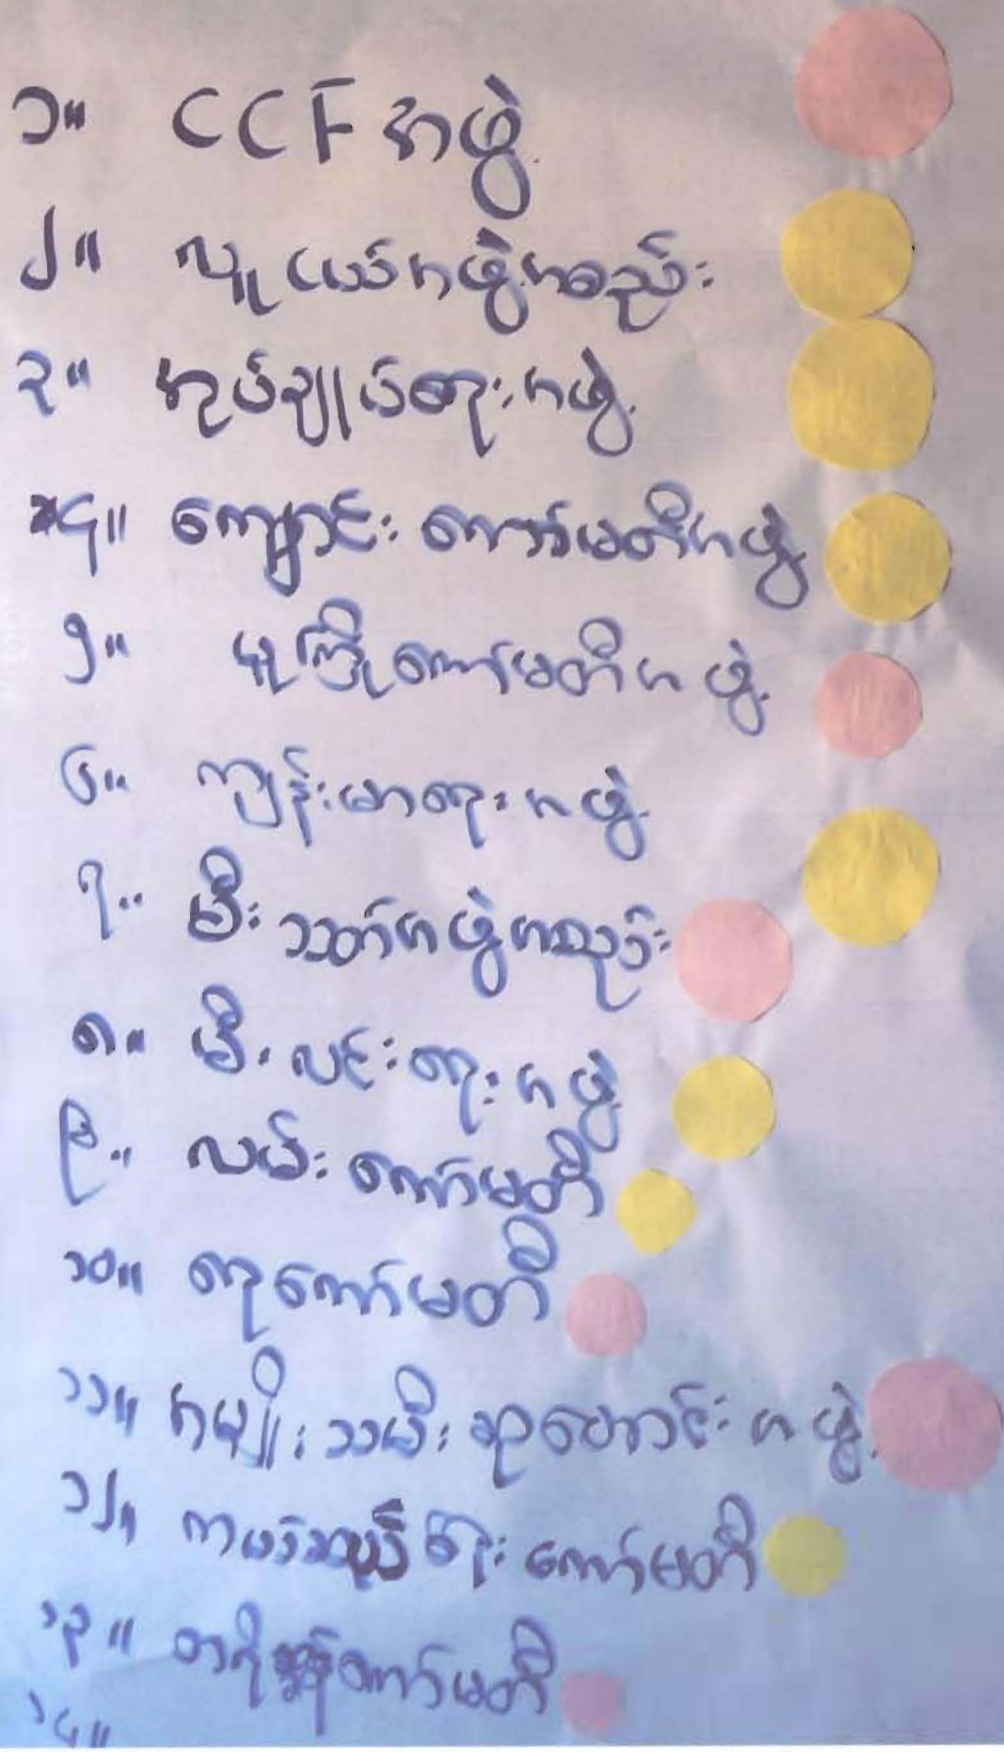 ၁။ CCF အဖွဲ့
၂။ လူငယ်အဖွဲ့အစည်း
၃။ အုပ်ချုပ်ရေးအဖွဲ့
၄။ ကျောင်းကော်မတီအဖွဲ့
၅။ မူကြိုကော်မတီအဖွဲ့
၆။ ကျန်းမာရေးအဖွဲ့
၇။ မီးသတ်အဖွဲ့အစည်း
၈။ မီးလင်းရေးအဖွဲ့
၉။ လမ်းကော်မတီ
၁၀။ ရေကော်မတီ
၁၁။ အမျိုးသမီးဆုတောင်းအဖွဲ့
၁၂။ ကယ်ဆယ်ရေးကော်မတီ
၁၃။ ကော်မတီ
၁၄။